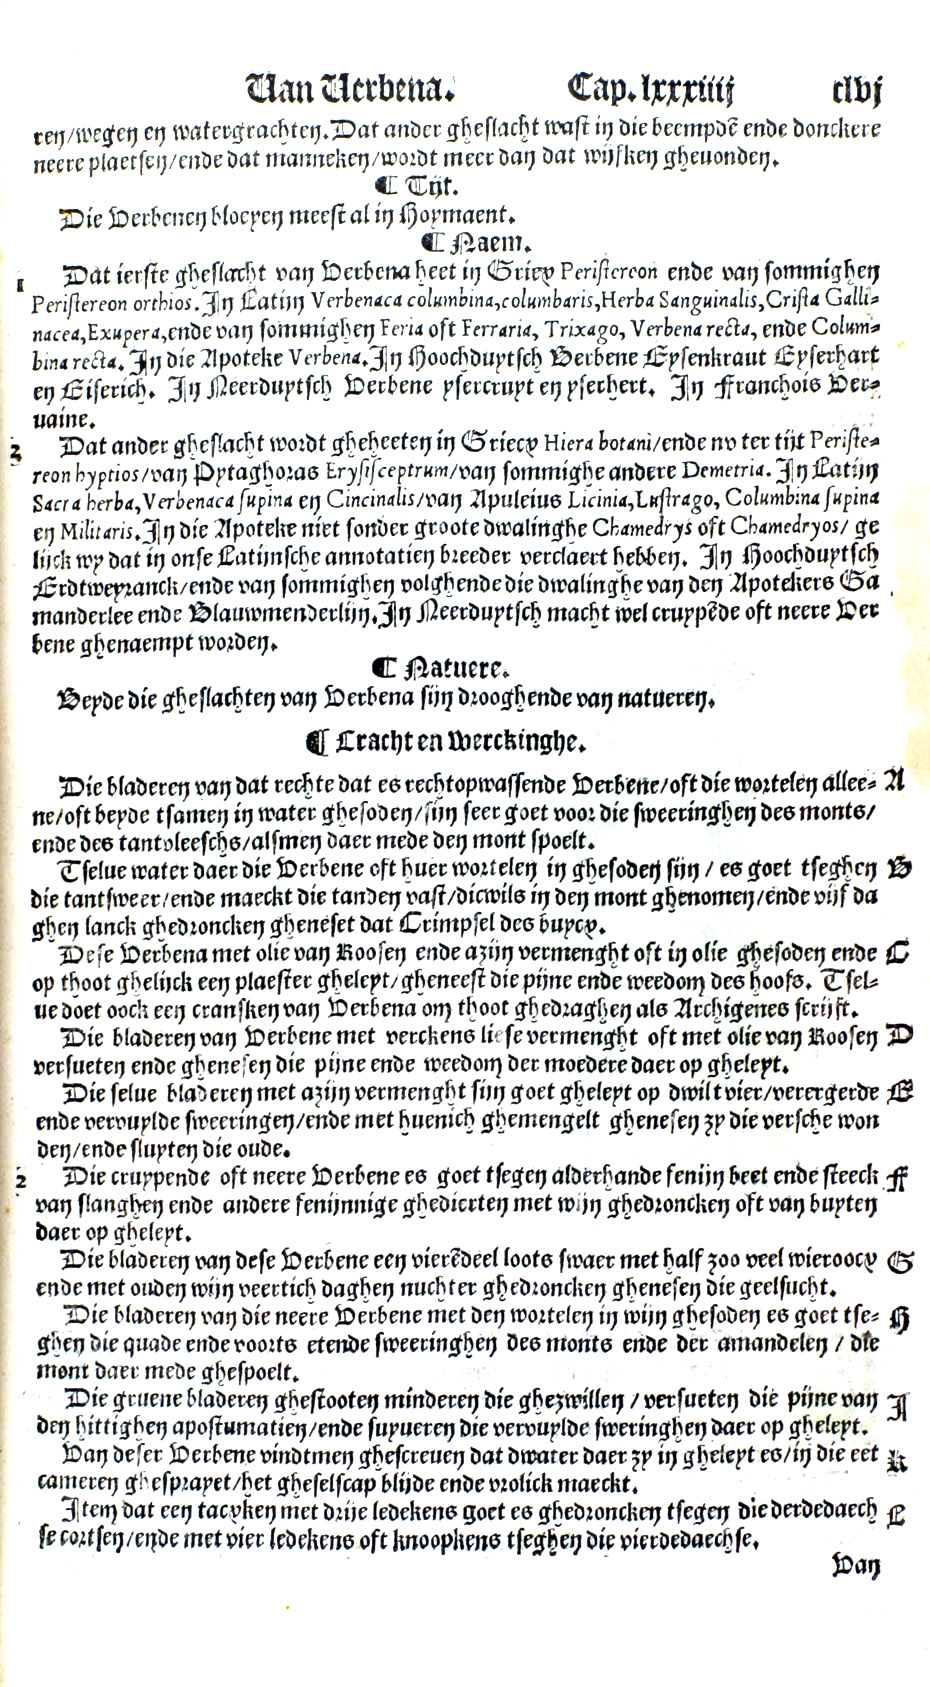 Van Verbena. Cap. lxxxiiij clvj
ren/wegen en watergrachten. Dat ander gheslacht wast in die beempdē ende donckere
neere plaetsen/ende dat manneken/wordt meer dan dat wijfken gheuonden.
¶ Tijt.
Die Verbenen bloeyen meest al in Hoymaent.
¶ Naem.
1 Dat ierste gheslacht van Verbena heet in Griecx Peristereon ende van sommighen
Peristereon orthios. In Latijn Verbenaca columbina, columbaris, Herba Sanguinalis, Crista Galli-
nacea, Exupera, ende van sommighen Feria oft Ferraria, Trixago, Verbena recta, ende Colum-
bina recta. In die Apoteke Verbena. In Hoochduytsch Verbene Eysenkraut Eyserhart
en Eiserich. In Neerduytsch Verbene ysercruyt en yserhert. In Franchois Ver-
uaine.
2 Dat ander gheslacht wordt gheheeten in Griecx Hiera botani/ende nv ter tijt Periste-
reon hyptios/van Pytaghoras Erysisceptrum/van sommighe andere Demetria. In Latijn
Sacra herba, Verbenaca supina en Cincinalis/van Apuleius Licinia, Lustrago, Columbina supina
en Militaris. In die Apoteke niet sonder groote dwalinghe Chamedrys oft Chamedryos/ ge
lijck wy dat in onse Latinsche annotatien breeder verclaert hebben. In Hoochduytsch
Erdtweyranck/ende van sommighen volghende die dwalinghe van den Apotekers Ga
manderlee ende Blauwmenderlijn. In Neerduytsch macht wel cruypēde oft neere Ver
bene ghenaempt worden.
¶ Natuere.
Beyde die gheslachten van Verbena sijn drooghende van natueren.
¶ Cracht en Werckinghe.
Die bladeren van dat rechte dat es rechtopwassende Verbene/oft die wortelen allee- A
ne/oft beyde tsamen in water ghesoden/sijn seer goet voor die sweeringhen des monts/
ende des tantvleeschs/alsmen daer mede den mont spoelt.
Tselue water daer die Verbene oft huer wortelen in ghesoden sijn / es goet tseghen B
die tantsweer/ende maeckt die tanden vast/dicwils in den mont ghenomen/ende vijf da
ghen lanck ghedroncken gheneset dat Crimpsel des buycx.
Dese Verbena met olie van Roosen ende azijn vermenght oft in olie ghesoden ende C
op thoot ghelijck een plaester gheleyt/gheneest die pijne ende weedom des hoofs. Tsel-
ue doet oock een cransken van Verbena om thoot ghedraghen als Archigenes scrijft.
Die bladeren van Verbene met verckens liese vermenght oft met olie van Roosen D
versueten ende ghenesen die pijne ende weedom der moedere daer op gheleyt.
Die selue bladeren met azijn vermenght sijn goet gheleyt op dwilt vier/verergerde E
ende vervuylde sweeringen/ende met huenich ghemengelt ghenesen zy die versche won
den/ende sluyten die oude.
2 Die cruypende oft neere Verbene es goet tsegen alderhande fenijn beet ende steeck F
van slanghen ende andere fenijnnige ghedierten met wijn ghedroncken oft van buyten
daer op gheleyt.
Die bladeren van dese Verbene een vierēdeel loots swaer met half zoo veel wieroocx G
ende met ouden wijn veertich daghen nuchter ghedroncken ghenesen die geelsucht.
Die bladeren van die neere Verbene met den wortelen in wijn ghesoden es goet tse- H
ghen die quade ende voorts etende sweeringhen des monts ende der amandelen / die
mont daer mede ghespoelt.
Die gruene bladeren ghestooten minderen die ghezwillen / versueten die pijne van I
den hittighen apostumatien/ende suyueren die vervuylde sweringhen daer op gheleyt.
Van deser Verbene vindtmen ghescreuen dat dwater daer zy in gheleyt es/in die eet K
cameren ghesprayet/het gheselscap blijde ende vrolick maeckt.
Item dat een tacxken met drije ledekens goet es ghedroncken tsegen die derdedaech L
se cortsen/ende met vier ledekens oft knoopkens tseghen die vierdedaechse.
Van